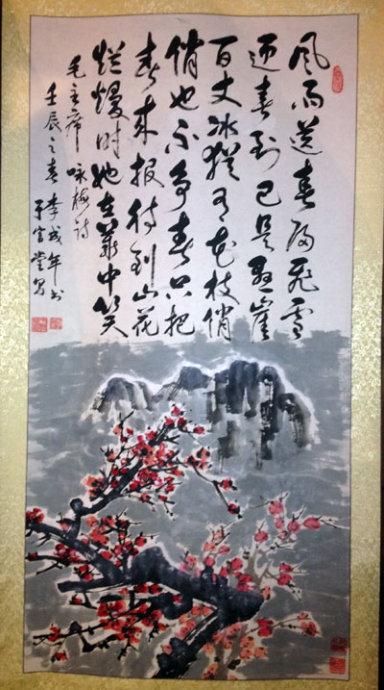 风雨送春归飞雪
迎春到已是悬崖
百丈冰猶有花枝俏
俏也不争春只把
春来报待到山花
烂熳时她在丛中笑
毛主席 咏梅诗
壬辰之春李成年书
堂写